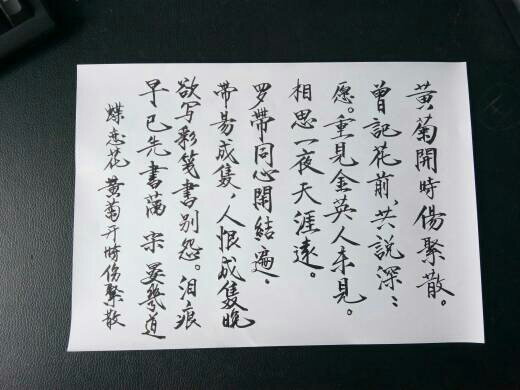 黄菊開時傷聚散。
曾記花前、共説深：
愿。重見金英人未見。
相思一夜天涯遠。
罗帶同心閑結遍、
帶易成隻，人恨成隻晚
欲写彩笺書别怨。泪痕
早已先書满 宋 晏幾道
蝶恋花 黄菊开時伤聚散